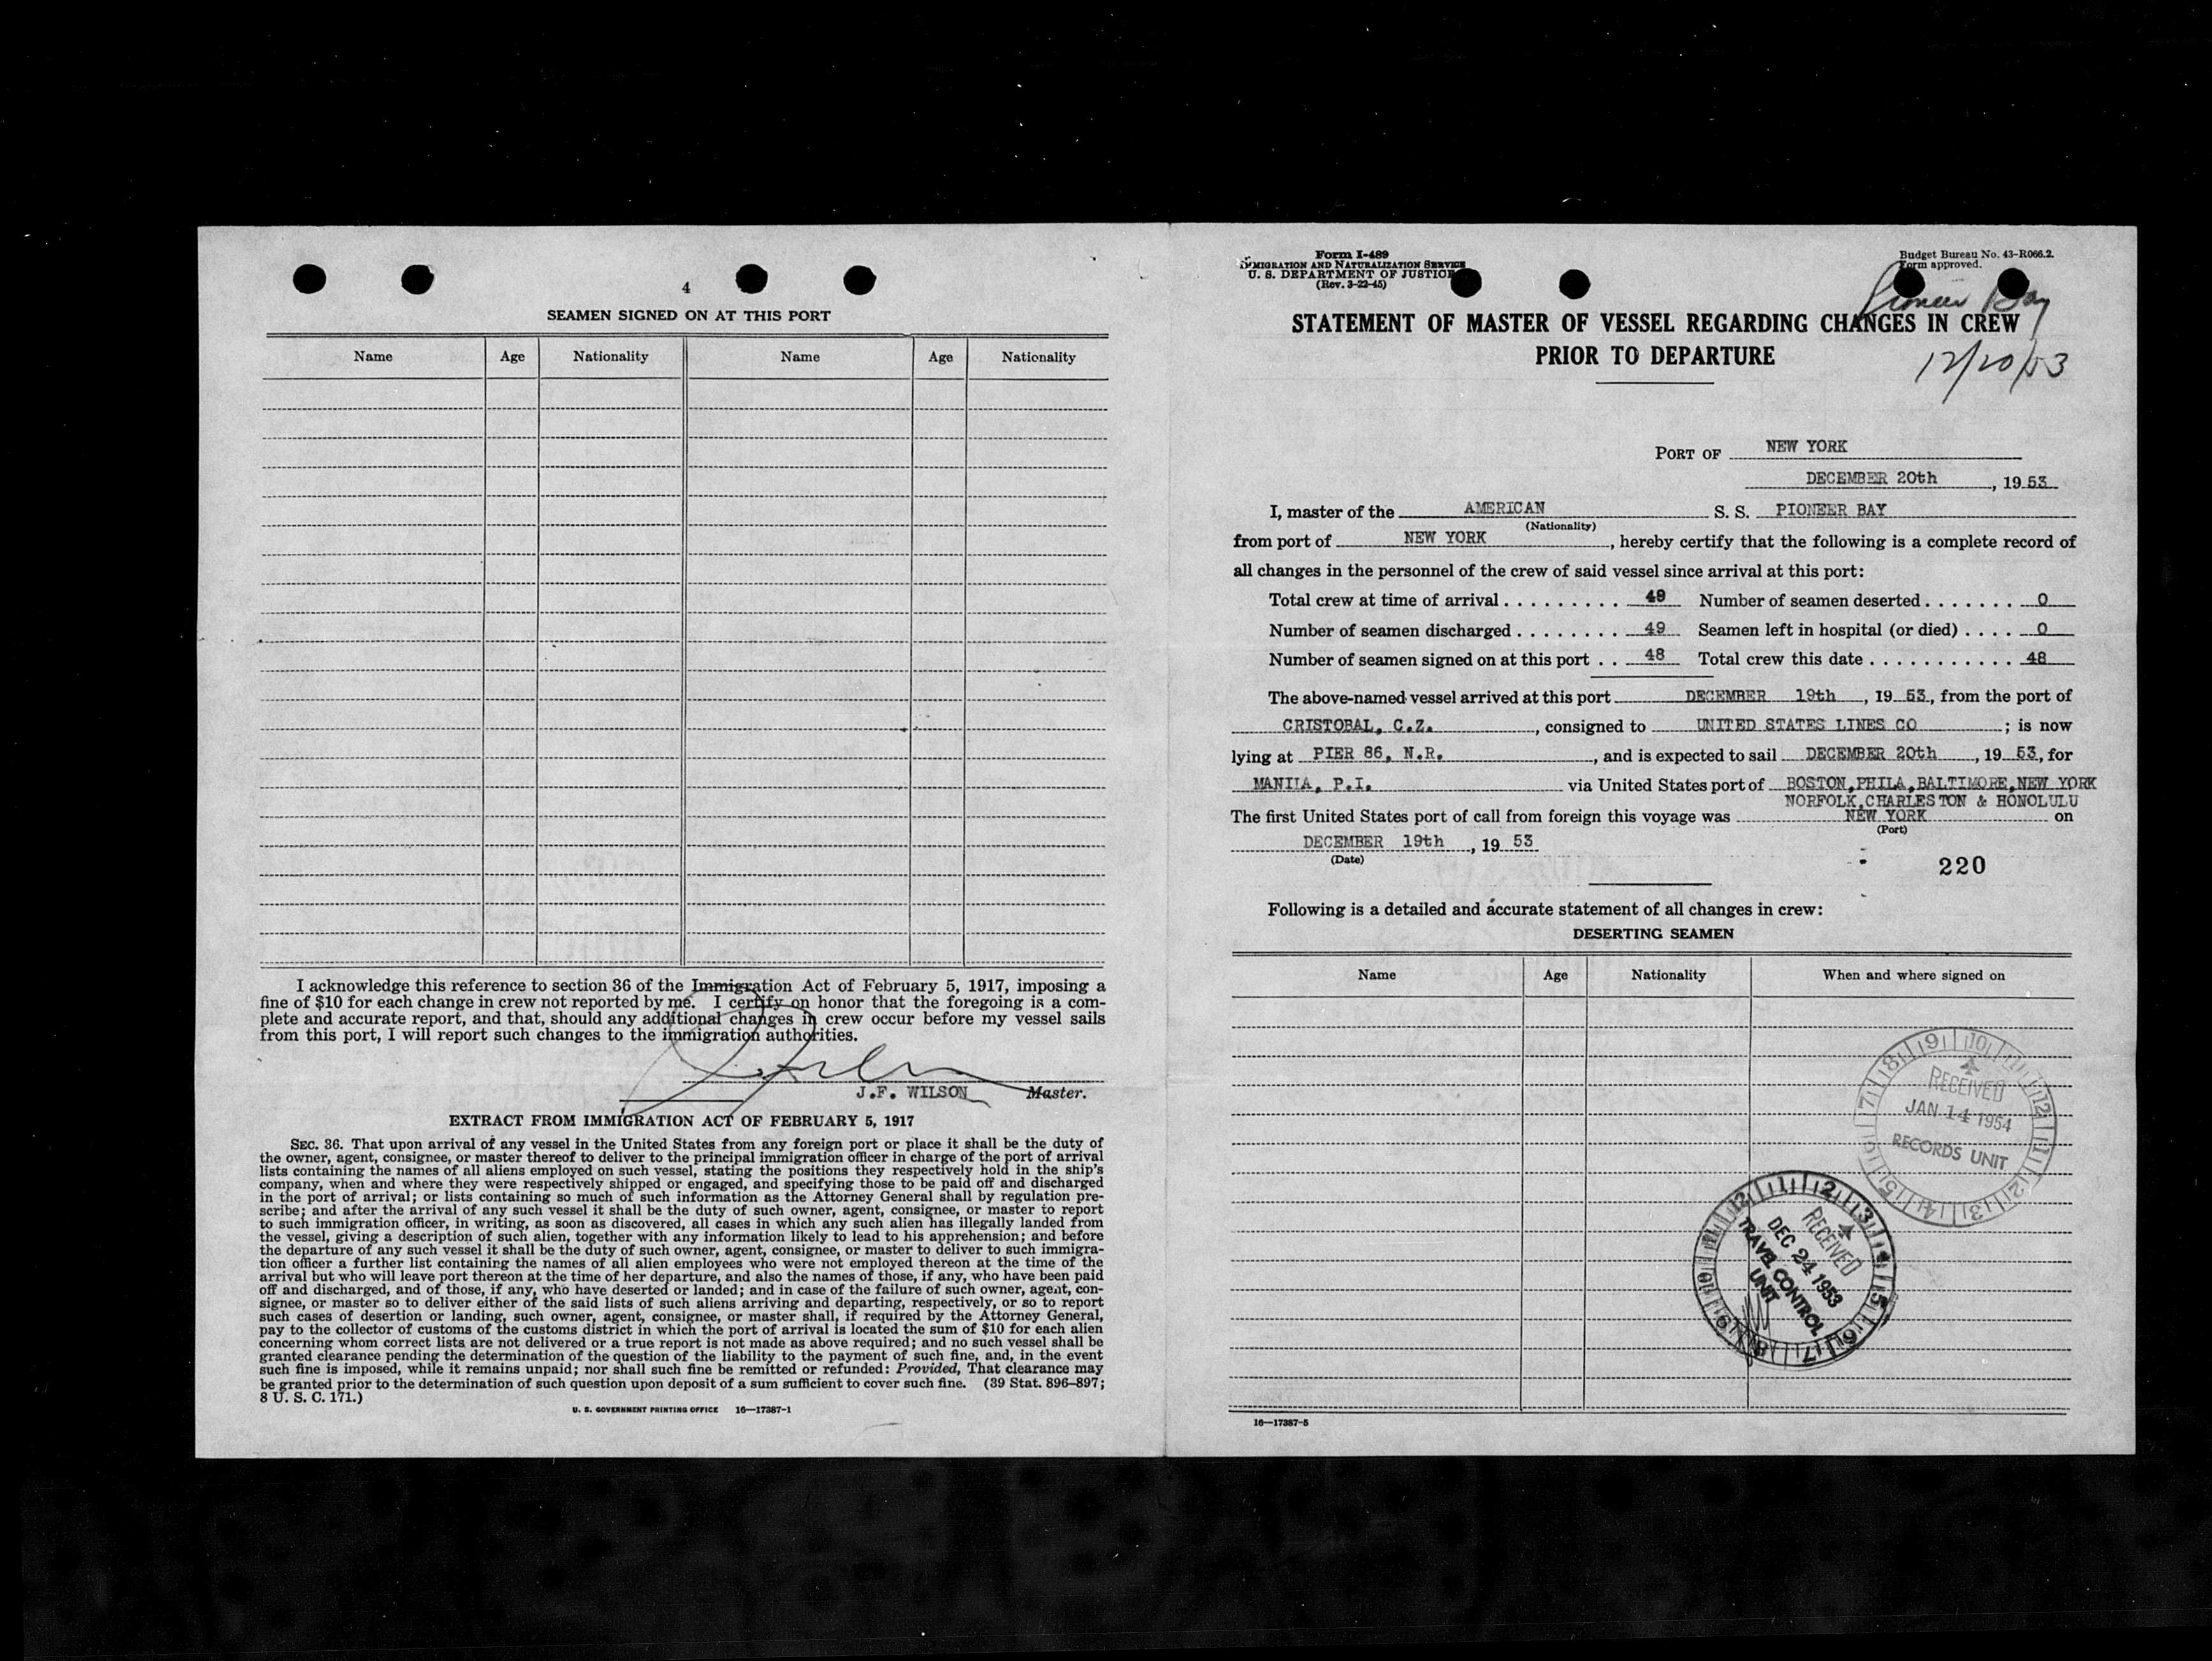 4
SEAMEN SIGNED ON AT THIS PORT
Name Age Nationality Name Age Nationality
I acknowledge this reference to section 36 of the Immigration Act of February 5, 1917, imposing a
fine of $10 for each change in crew not reported by me. I certify on honor that the foregoing is a com-
plete and accurate report, and that, should any additional changes in crew occur before my vessel sails
from this port, I will report such changes to the immigration authorities.
J.F. WILSON Master.
EXTRACT FROM IMMIGRATION ACT OF FEBRUARY 5, 1917
SEC. 36. That upon arrival of any vessel in the United States from any foreign port or place it shall be the duty of
the owner, agent, consignee, or master thereof to deliver to the principal immigration officer in charge of the port of arrival
lists containing the names of all aliens employed on such vessel, stating the positions they respectively hold in the ship's
company, when and where they were respectively shipped or engaged, and specifying those to be paid off and discharged
in the port of arrival; or lists containing so much of such information as the Attorney General shall by regulation pre-
scribe; and after the arrival of any such vessel it shall be the duty of such owner, agent, consignee, or master to report
to such immigration officer, in writing, as soon as discovered, all cases in which any such alien has illegally landed from
the vessel, giving a description of such alien, together with any information likely to lead to his apprehension; and before
the departure of any such vessel it shall be the duty of such owner, agent, consignee, or master to deliver to such immigra-
tion officer a further list containing the names of all alien employees who were not employed thereon at the time of the
arrival but who will leave port thereon at the time of her departure, and also the names of those, if any, who have been paid
off and discharged, and of those, if any, who have deserted or landed; and in case of the failure of such owner, agent, con-
signee, or master so to deliver either of the said lists of such aliens arriving and departing, respectively, or so to report
such cases of desertion or landing, such owner, agent, consignee, or master shall, if required by the Attorney General,
pay to the collector of customs of the customs district in which the port of arrival is located the sum of $10 for each alien
concerning whom correct lists are not delivered or a true report is not made as above required; and no such vessel shall be
granted clearance pending the determination of the question of the liability to the payment of such fine, and, in the event
such fine is imposed, while it remains unpaid; nor shall such fine be remitted or refunded: Provided, That clearance may
be granted prior to the determination of such question upon deposit of a sum sufficient to cover such fine. (39 Stat. 896–897;
8 U. S. C. 171.)
U. S. GOVERNMENT PRINTING OFFICE 16—17387-1
Form I-489
IMMIGRATION AND NATURALIZATION SERVICE
U. S. DEPARTMENT OF JUSTICE
(Rev. 3-22-45)
Budget Bureau No. 43-R066.2.
Form approved.
Pioneer Bay
STATEMENT OF MASTER OF VESSEL REGARDING CHANGES IN CREW
PRIOR TO DEPARTURE
12/20/53
PORT OF NEW YORK
DECEMBER 20th, 1953
I, master of the AMERICAN S. S. PIONEER BAY
(Nationality)
from port of NEW YORK, hereby certify that the following is a complete record of
all changes in the personnel of the crew of said vessel since arrival at this port:
Total crew at time of arrival . . . . . . . . . 49 Number of seamen deserted . . . . . . . 0
Number of seamen discharged . . . . . . . . 49 Seamen left in hospital (or died) . . . . 0
Number of seamen signed on at this port . . 48 Total crew this date . . . . . . . . . . . 48
The above-named vessel arrived at this port DECEMBER 19th, 1953, from the port of
CRISTOBAL, C.Z., consigned to UNITED STATES LINES CO; is now
lying at PIER 86, N.R., and is expected to sail DECEMBER 20th, 1953, for
MANILA, P.I. via United States port of BOSTON,PHILA,BALTIMORE,NEW YORK
NORFOLK,CHARLESTON & HONOLULU
The first United States port of call from foreign this voyage was NEW YORK on
(Port)
DECEMBER 19th, 1953
(Date)
220
Following is a detailed and accurate statement of all changes in crew:
DESERTING SEAMEN
Name Age Nationality When and where signed on
RECEIVED
JAN 14 1954
RECORDS UNIT
RECEIVED
DEC 24 1953
TRAVEL CONTROL
UNIT
16—17387-5